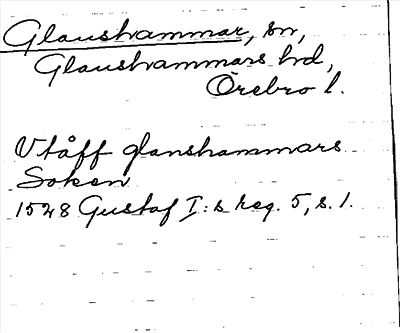 Glanshammar, sn,
Glanshammars hd,
Örebro l.
Vtåff glanshammars
Soken
1528 Gustaf I:s reg. 5, s. 1.